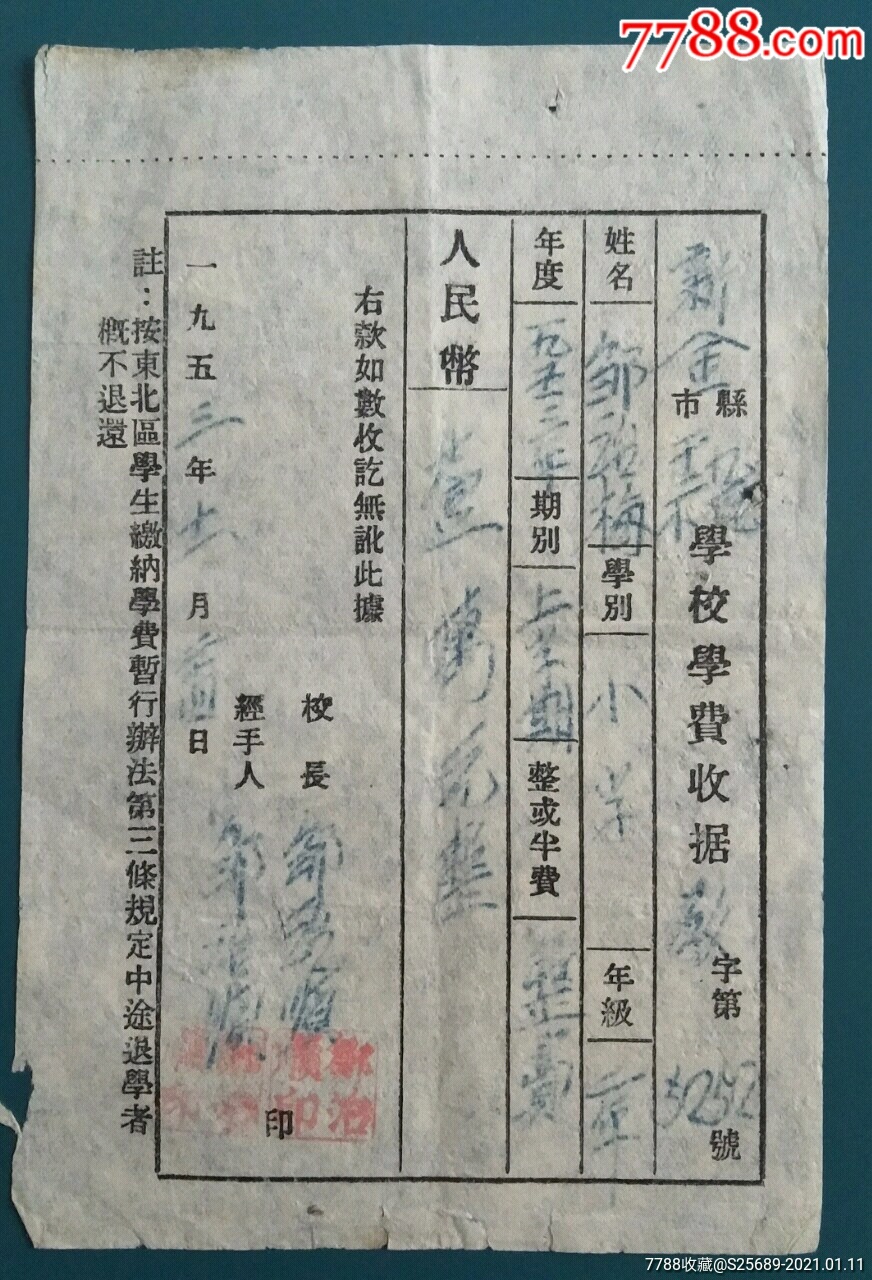 7788.com
新金 縣市 學校學費收据 字第 3252 號
姓名 鄒 梅 學別 小学 年級 一年
年度 一九五三年 期別 上学期 整或半費 整費
人民幣 壹萬元整
右款如數收訖無訛此據
校長 鄒 順
經手人 鄒 順
印
一九五三年十一月 日
註：按東北區學生繳納學費暫行辦法第三條規定中途退學者
概不退還
7788收藏@S25689-2021.01.11